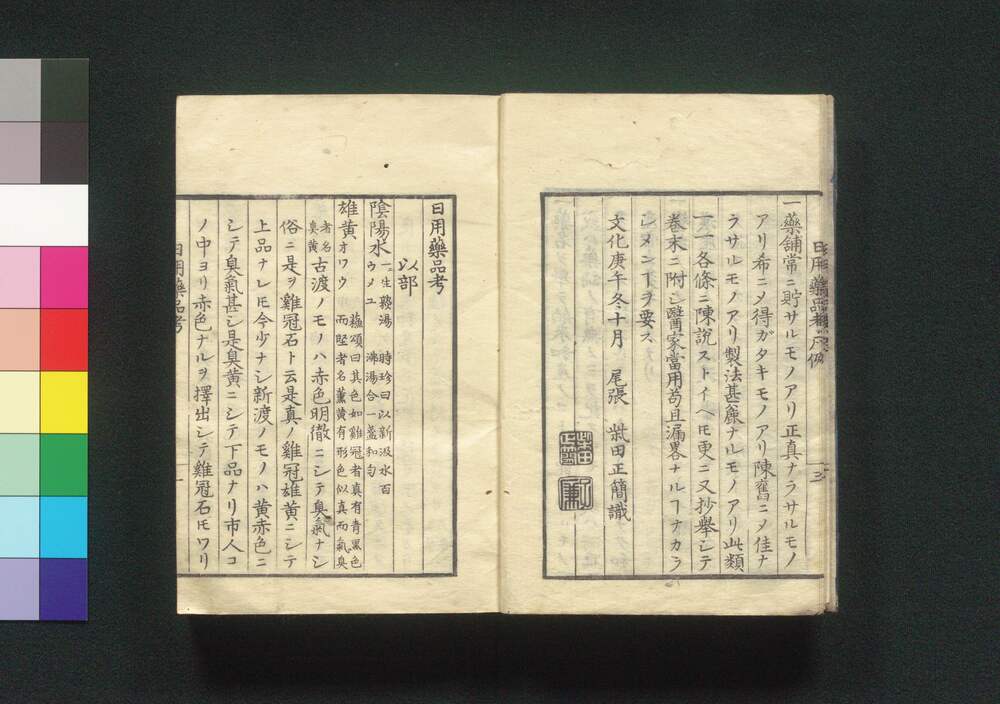 日用藥品考凡例
一藥舖常ニ貯サルモノアリ正真ナラサルモノ
アリ希ニ〆得ガタキモノアリ陳舊ニ〆佳ナ
ラサルモノアリ製法甚麁ナルモノアリ此類
一一各條ニ陳說ストイヘ𪜈更ニ又抄舉シテ
卷末ニ附シ醫家當用苟且漏畧ナルヿナカラ
シメンヿヲ要ス
文化庚午冬十月 尾張 柴田正簡識
日用藥品考
以部
陰陽水 一生熟湯 時珍曰以新汲水百
ウメノユ 沸湯合一盞和匀
雄黃 オワウ 蘓頌曰其色如雞冠者真有青黑色
而堅者名薰黃有形色似真而氣臭
者名臭黃 古渡ノモノハ赤色明徹ニシテ臭氣ナシ
俗ニ是ヲ雞冠石ト云是真ノ雞冠雄黃ニシテ
上品ナレ𪜈今少ナシ新渡ノモノハ黃赤色ニ
シテ臭氣甚シ是臭黃ニシテ下品ナリ市人コ
ノ中ヨリ赤色ナルヲ擇出シテ雞冠石𪜈ワリ
日用藥品考